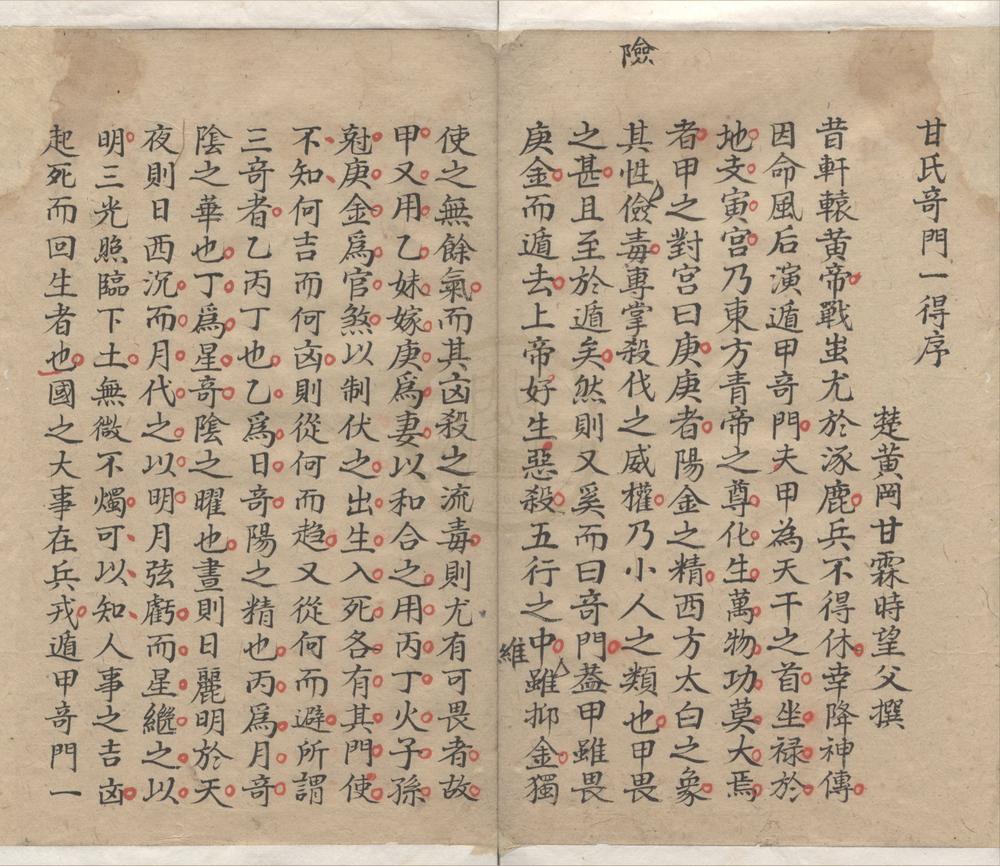 甘氏竒門一得序
楚黃岡甘霖時望父撰
昔軒轅黄帝戰蚩尤於涿鹿兵不得休幸降神傳
因命風后演遁甲竒門夫甲為天干之首坐禄於
地支寅宫乃東方青帝之尊化生萬物功莫大焉
者甲之對宮曰庚庚者陽金之精西方太白之象
險
其性儉毒專掌殺伐之威權乃小人之類也甲畏
之甚且至於遁矣然則又奚而曰竒門葢甲雖畏
庚金而遁去上帝好生惡殺五行之中雖抑金獨
維
使之無餘氣而其㐫殺之流毒則尤有可畏者故
甲又用乙妹嫁庚爲妻以和合之用丙丁火子孫
尅庚金爲官煞以制伏之出生入死各有其門使
不知何吉而何㐫則從何而趋又從何而避所謂
三竒者乙丙丁也乙爲日竒陽之精也丙爲月竒
陰之華也丁爲星竒陰之曜也晝則日麗明於天
夜則日西沉而月代之以明月弦虧而星繼之以
明三光照臨下土無微不燭可以知人事之吉㐫
起死而回生者也國之大事在兵戎遁甲竒門一